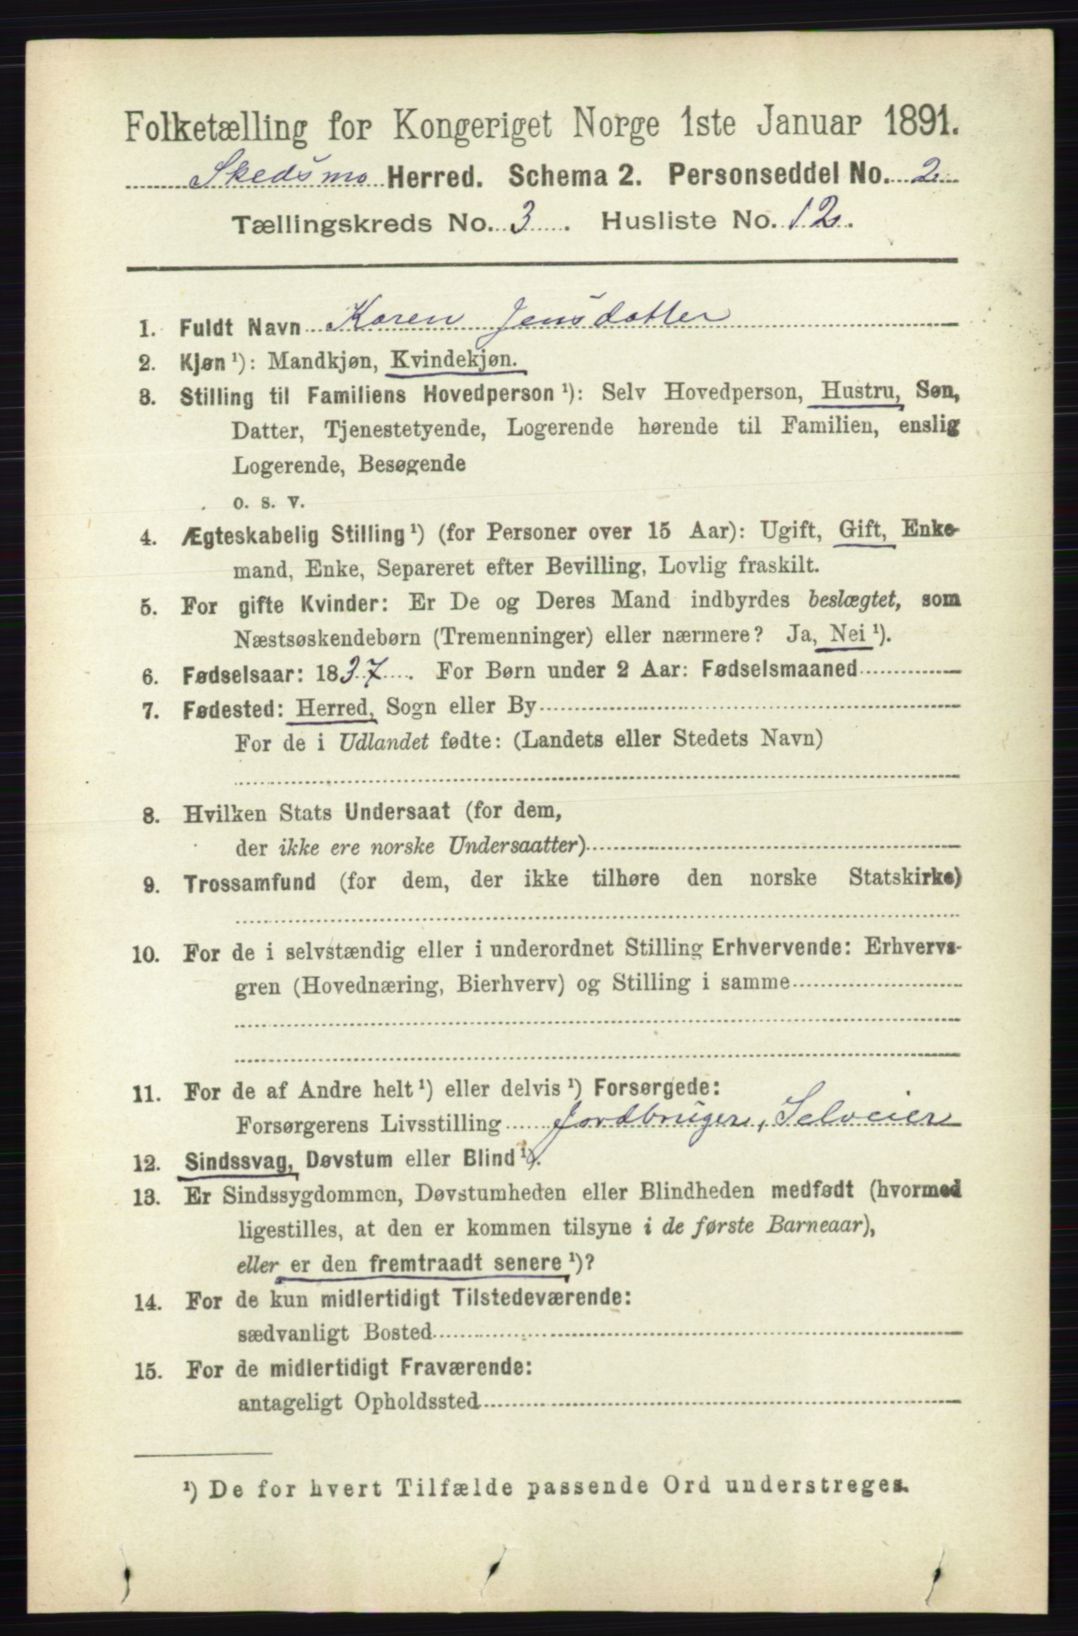 Folketælling for Kongeriget Norge 1ste Januar 1891.
Skedsmo Herred. Schema 2. Personseddel No. 2.
Tællingskreds No. 3. Husliste No. 12.
1. Fuldt Navn Karen Jensdatter
2. Kjøn ¹): Mandkjøn, Kvindekjøn.
3. Stilling til Familiens Hovedperson ¹): Selv Hovedperson, Hustru, Søn,
Datter, Tjenestetyende, Logerende hørende til Familien, enslig
Logerende, Besøgende
o. s. v.
4. Ægteskabelig Stilling ¹) (for Personer over 15 Aar): Ugift, Gift, Enke-
mand, Enke, Separeret efter Bevilling, Lovlig fraskilt.
5. For gifte Kvinder: Er De og Deres Mand indbyrdes beslægtet, som
Næstsøskendebørn (Tremenninger) eller nærmere? Ja, Nei ¹).
6. Fødselsaar: 1837. For Børn under 2 Aar: Fødselsmaaned
7. Fødested: Herred, Sogn eller By
For de i Udlandet fødte: (Landets eller Stedets Navn)
8. Hvilken Stats Undersaat (for dem,
der ikke ere norske Undersaatter)
9. Trossamfund (for dem, der ikke tilhøre den norske Statskirke)
10. For de i selvstændig eller i underordnet Stilling Erhvervende: Erhvervs-
gren (Hovednæring, Bierhverv) og Stilling i samme
11. For de af Andre helt ¹) eller delvis ¹) Forsørgede:
Forsørgerens Livsstilling Jordbruger, Selveier
12. Sindssvag, Døvstum eller Blind ¹).
13. Er Sindssygdommen, Døvstumheden eller Blindheden medfødt (hvormed
ligestilles, at den er kommen tilsyne i de første Barneaar),
eller er den fremtraadt senere ¹)?
14. For de kun midlertidigt Tilstedeværende:
sædvanligt Bosted
15. For de midlertidigt Fraværende:
antageligt Opholdssted
¹) De for hvert Tilfælde passende Ord understreges.